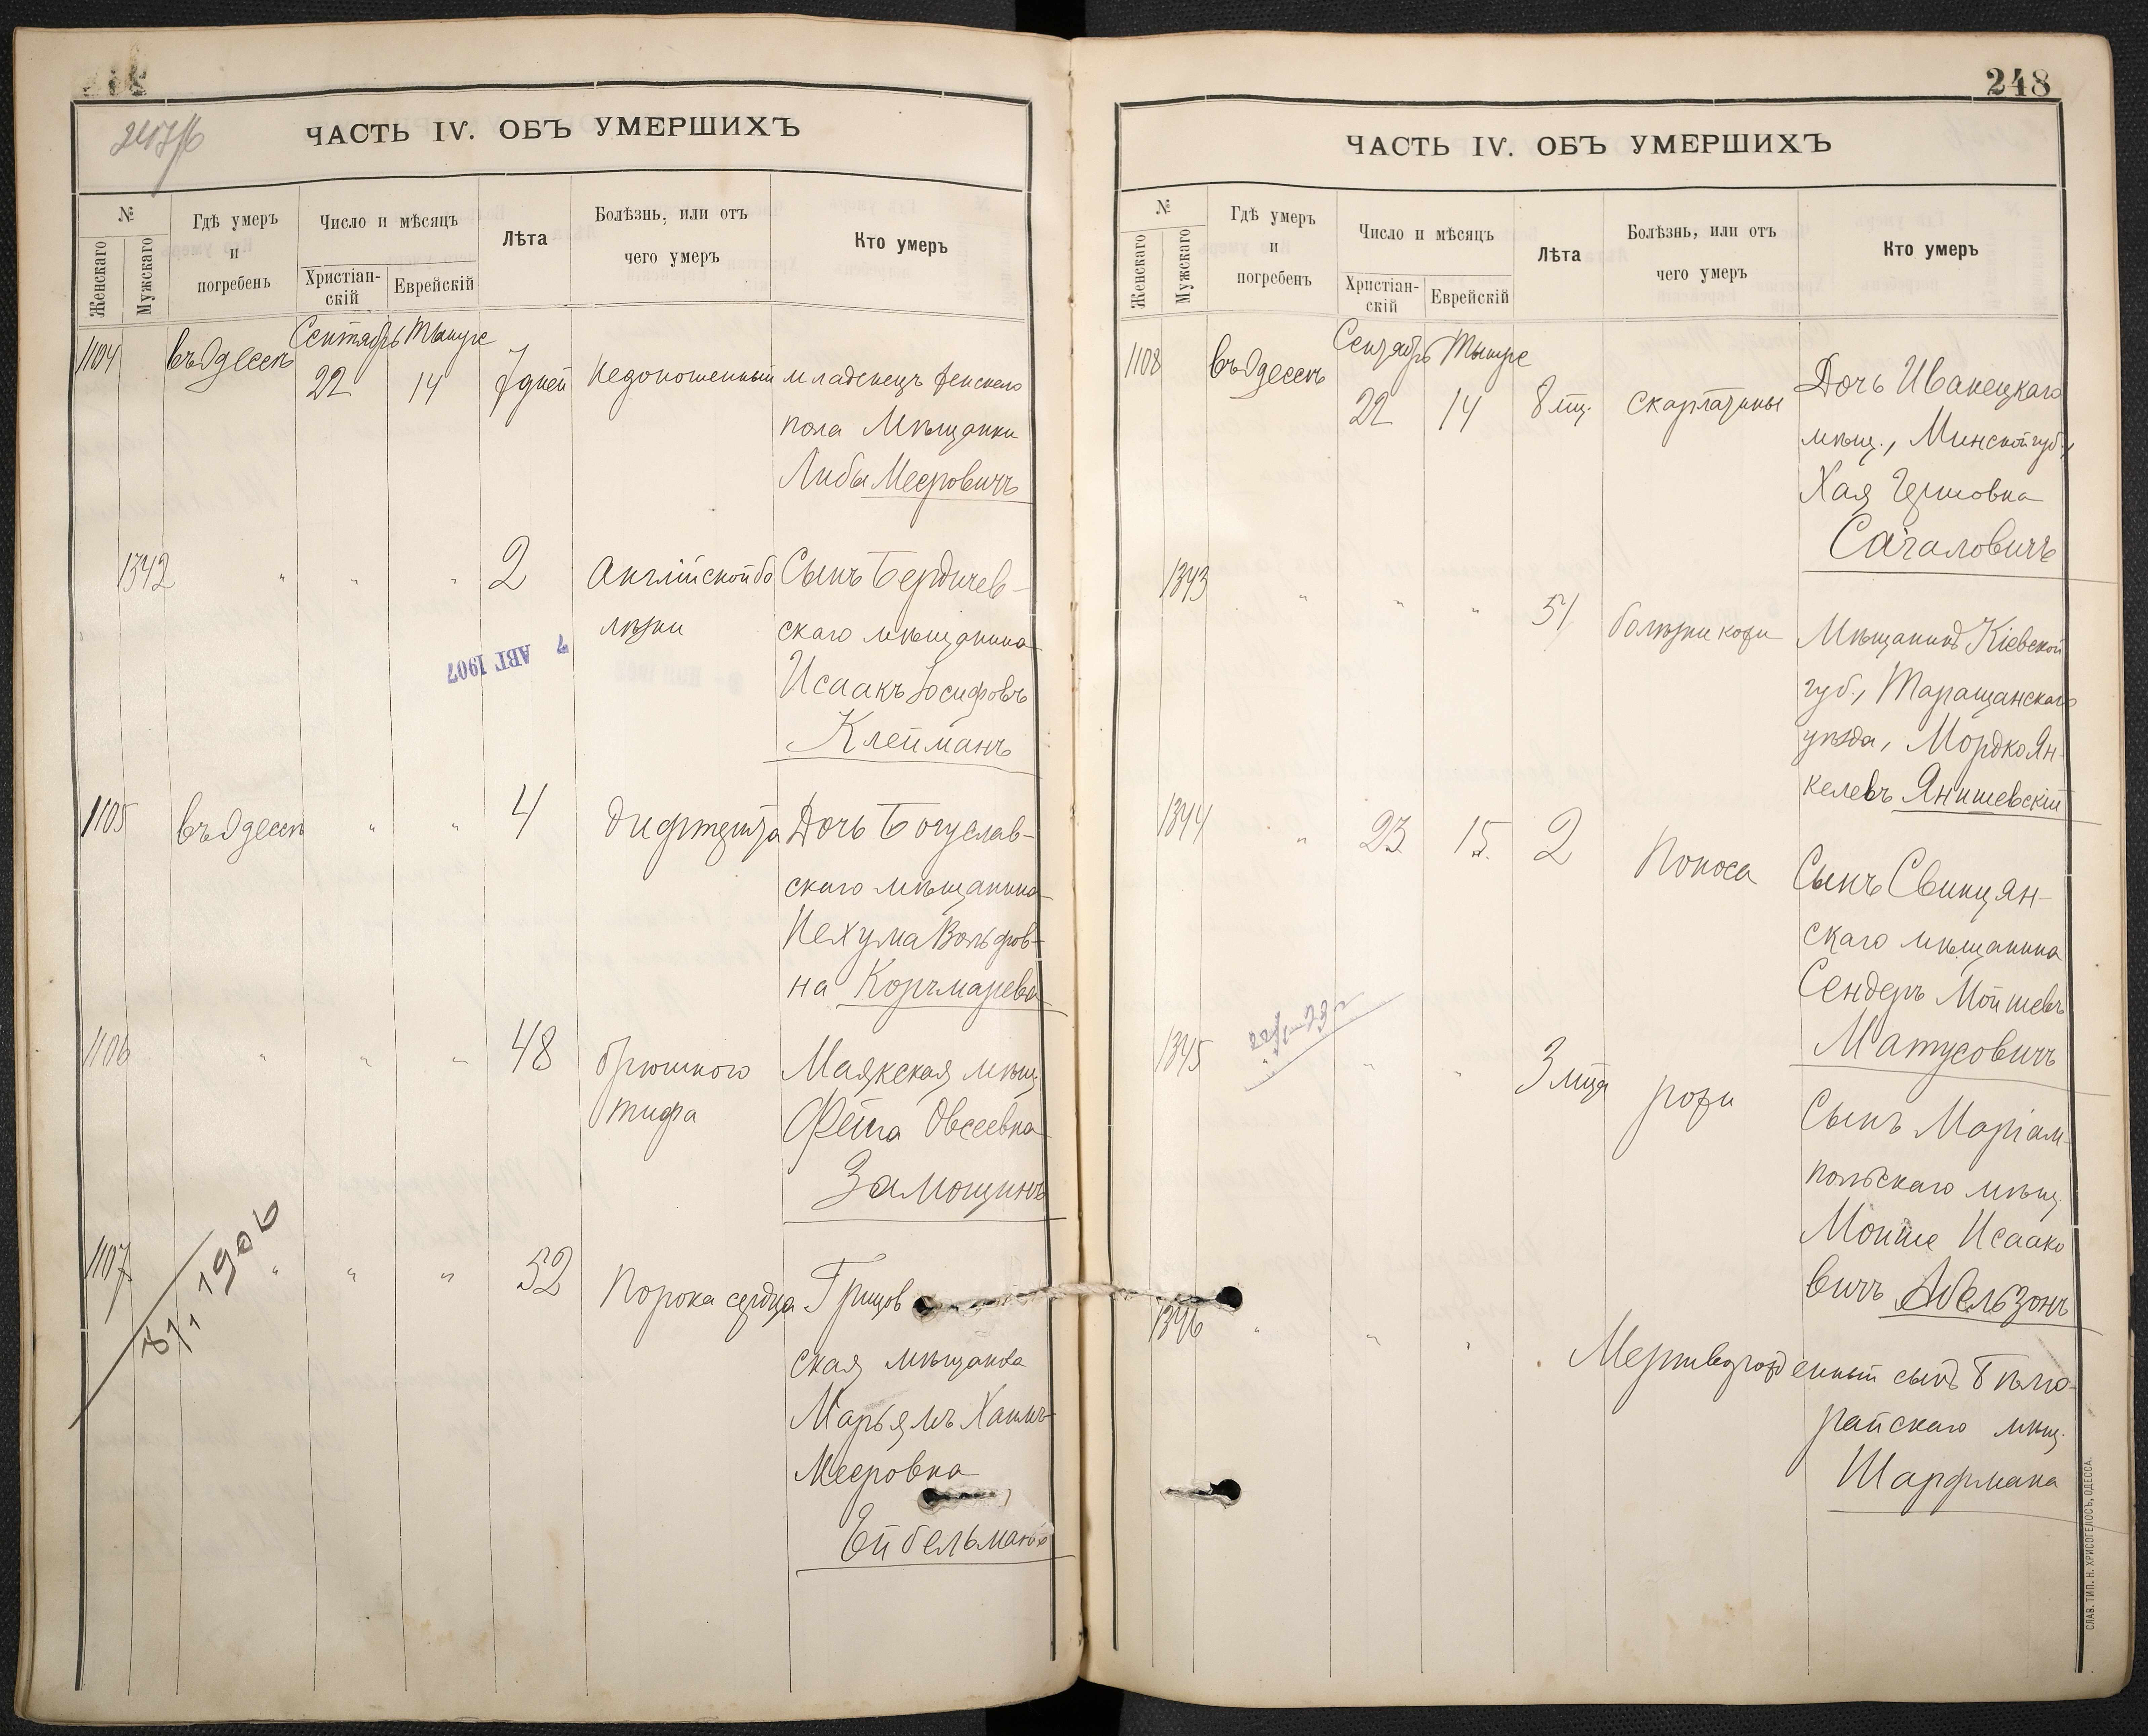 247/б
ЧАСТЬ IV. ОБЪ УМЕРШИХЪ
№
Женскаго
Мужскаго
Гдѣ умеръ
и
погребенъ
Число и мѣсяцъ
Христіан-
скій
Еврейскій
Лѣта
Болѣзнь, или отъ
чего умеръ
Кто умеръ
1104 въ Одессѣ Сентябрь Тышре
22 14 7 дней Недоношенный младенецъ женскаго
пола Мѣщанки
Либы Мееровичъ
1342 " " " 2 Англійской бо Сынъ Бердичев-
лѣзни скаго мѣщанина
7 АВГ. 1907
Исаакъ Іосифовъ
Клейманъ
1105 въ Одессѣ " " 4 Дифтерита Дочь Богуслав-
скаго мѣщанина
Нехума Вольфов-
на Корчмарева
1106 " " " 48 брюшного Маякская мѣщ.
тифа Фейга Овсеевна
Замощинъ
1107 " " " 52 Порока сердца Грицов
ская мѣщанка
Марьямъ Хаимъ-
Мееровна
Ейбельманъ
1906
248
ЧАСТЬ IV. ОБЪ УМЕРШИХЪ
№
Женскаго
Мужскаго
Гдѣ умеръ
и
погребенъ
Число и мѣсяцъ
Христіан-
скій
Еврейскій
Лѣта
Болѣзнь, или отъ
чего умеръ
Кто умеръ
1108 въ Одессѣ Сентябрь Тышре
22 14 8 мц. скарлатины Дочь Иванецкаго
мѣщ., Минской губ.,
Хая Гершовна
Сагаловичъ
1343 " " " 51 болѣзни кожи Мѣщанинъ Кіевской
губ., Таращанскаго
уѣзда, Мордко Ян-
келевъ Янишевскій
1344 " 23 15. 2 Поноса Сынъ Свинцян-
скаго мѣщанина
Сендеръ Мойшевъ
Матусовичъ
1345 " " " 3 мца рожи Сынъ Маріам-
польскаго мѣщ.
Мойше Исаако
вичъ Абельзонъ
1346 " " " Мертворожденный сынъ Бѣлго-
райскаго мѣщ.
Шарфмана
СЛАВ. ТИП. Н. ХРИСОГЕЛОСЪ, ОДЕССА.